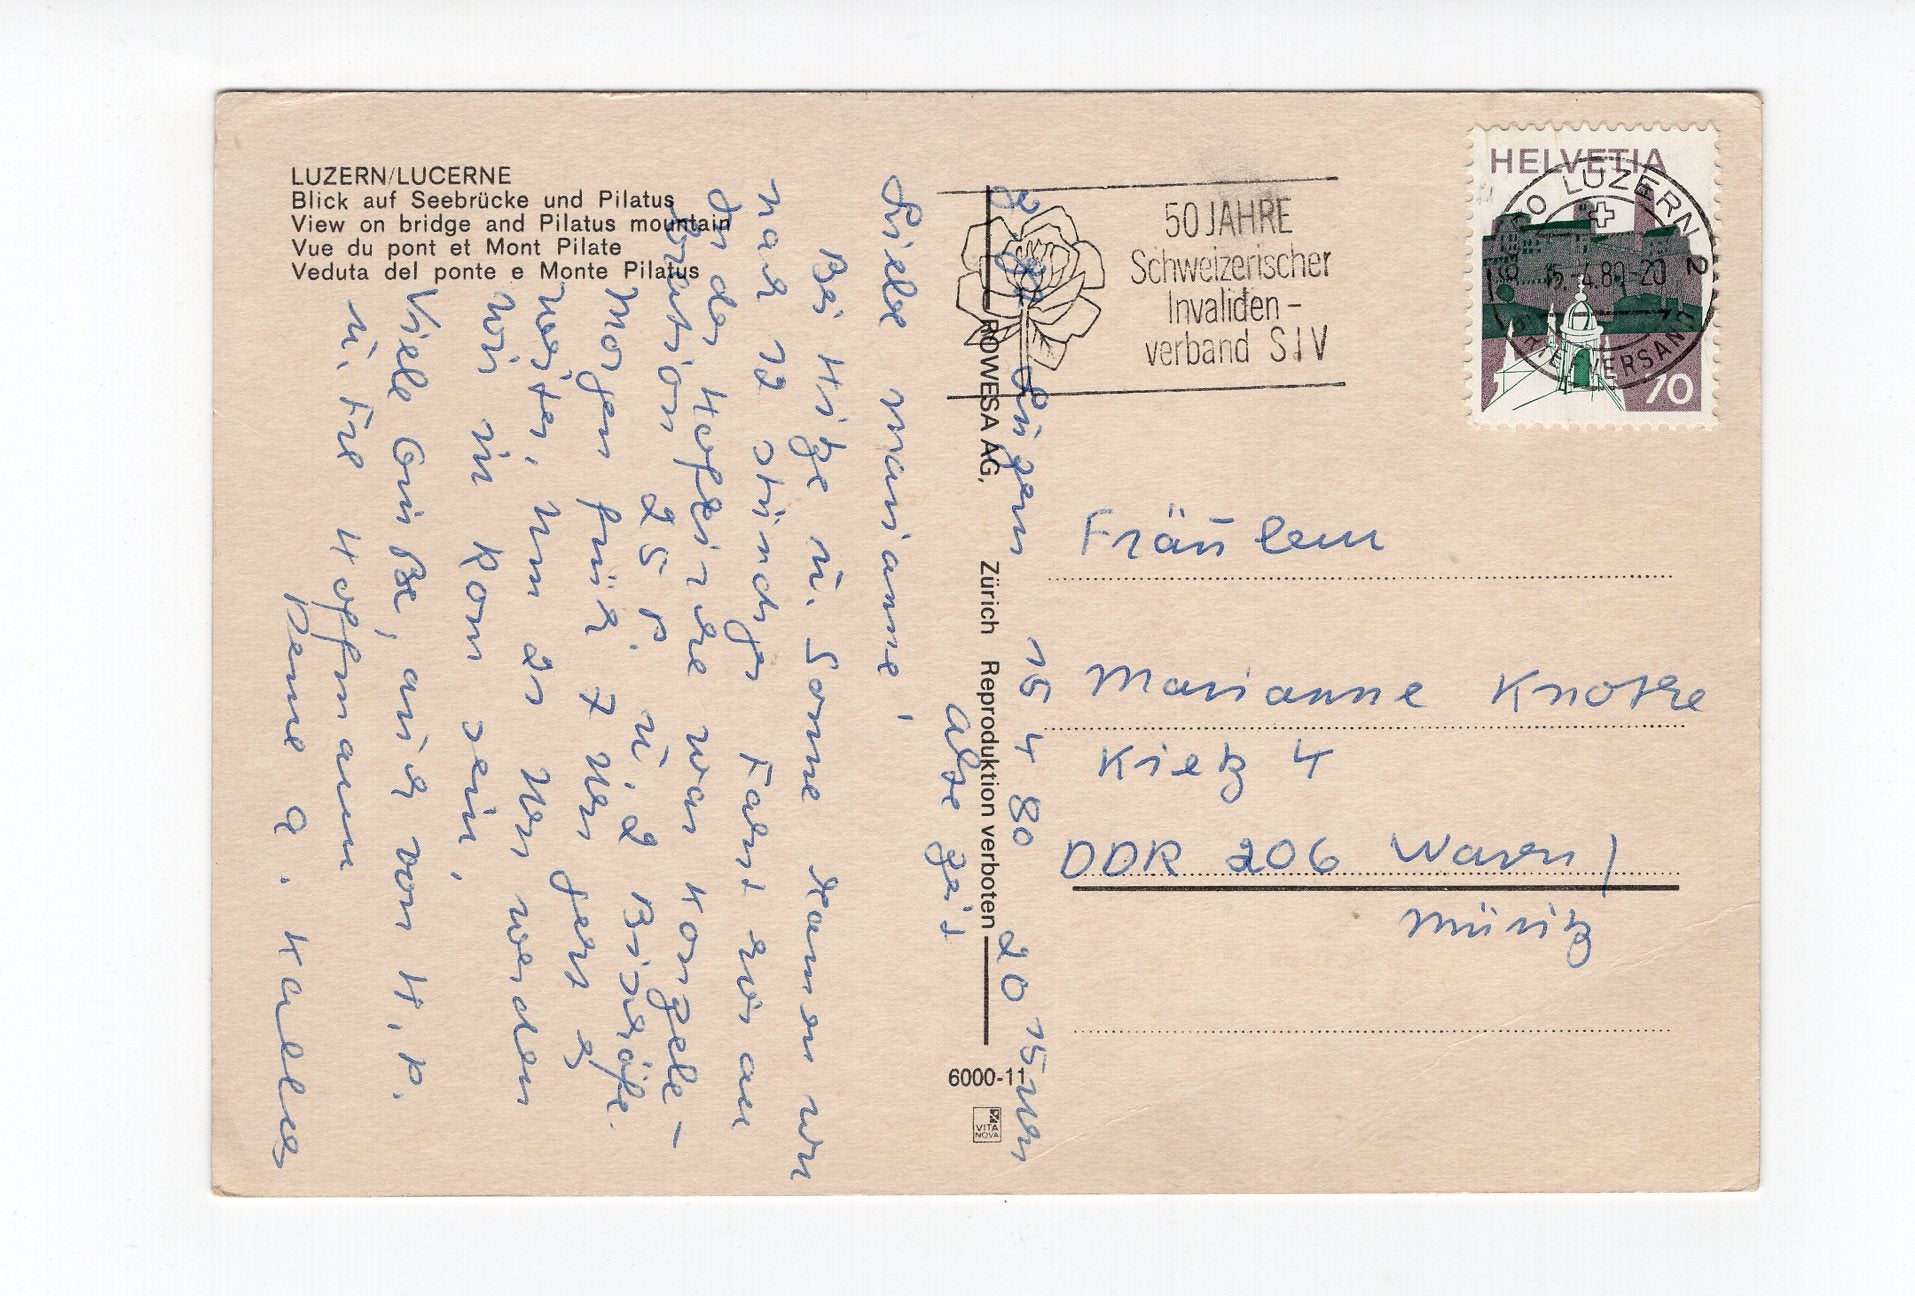 LUZERN/LUCERNE
Blick auf Seebrücke und Pilatus
View on bridge and Pilatus mountain
Vue du pont et Mont Pilate
Veduta del ponte e Monte Pilatus
Luzern 15 4 80 20 15 Uhr
Alte Zeit
Liebe Marianne!
Bei Hitze u. Sonne kamen wir
nach 12 stündiger Fahrt hier an
In der Hofkirche war Konzele-
bration 25 P. u. 2 Bischöfe.
Morgen früh 7 Uhr geht es
weiter, Um 21 Uhr werden
wir in Rom sein,
Viele Grüße, auch von H. P.
u. Frl Hoffmann
Deine
ROWESA AG, Zürich Reproduktion verboten
6000-11
VITA NOVA
50 JAHRE
Schweizerischer
Invaliden-
verband SIV
HELVETIA
70
LUZERN 2
15.-4.80-20
BRIEFVERSAND
Fräulein
Marianne Knothe
Kietz 4
DDR 206 Waren/
Müritz